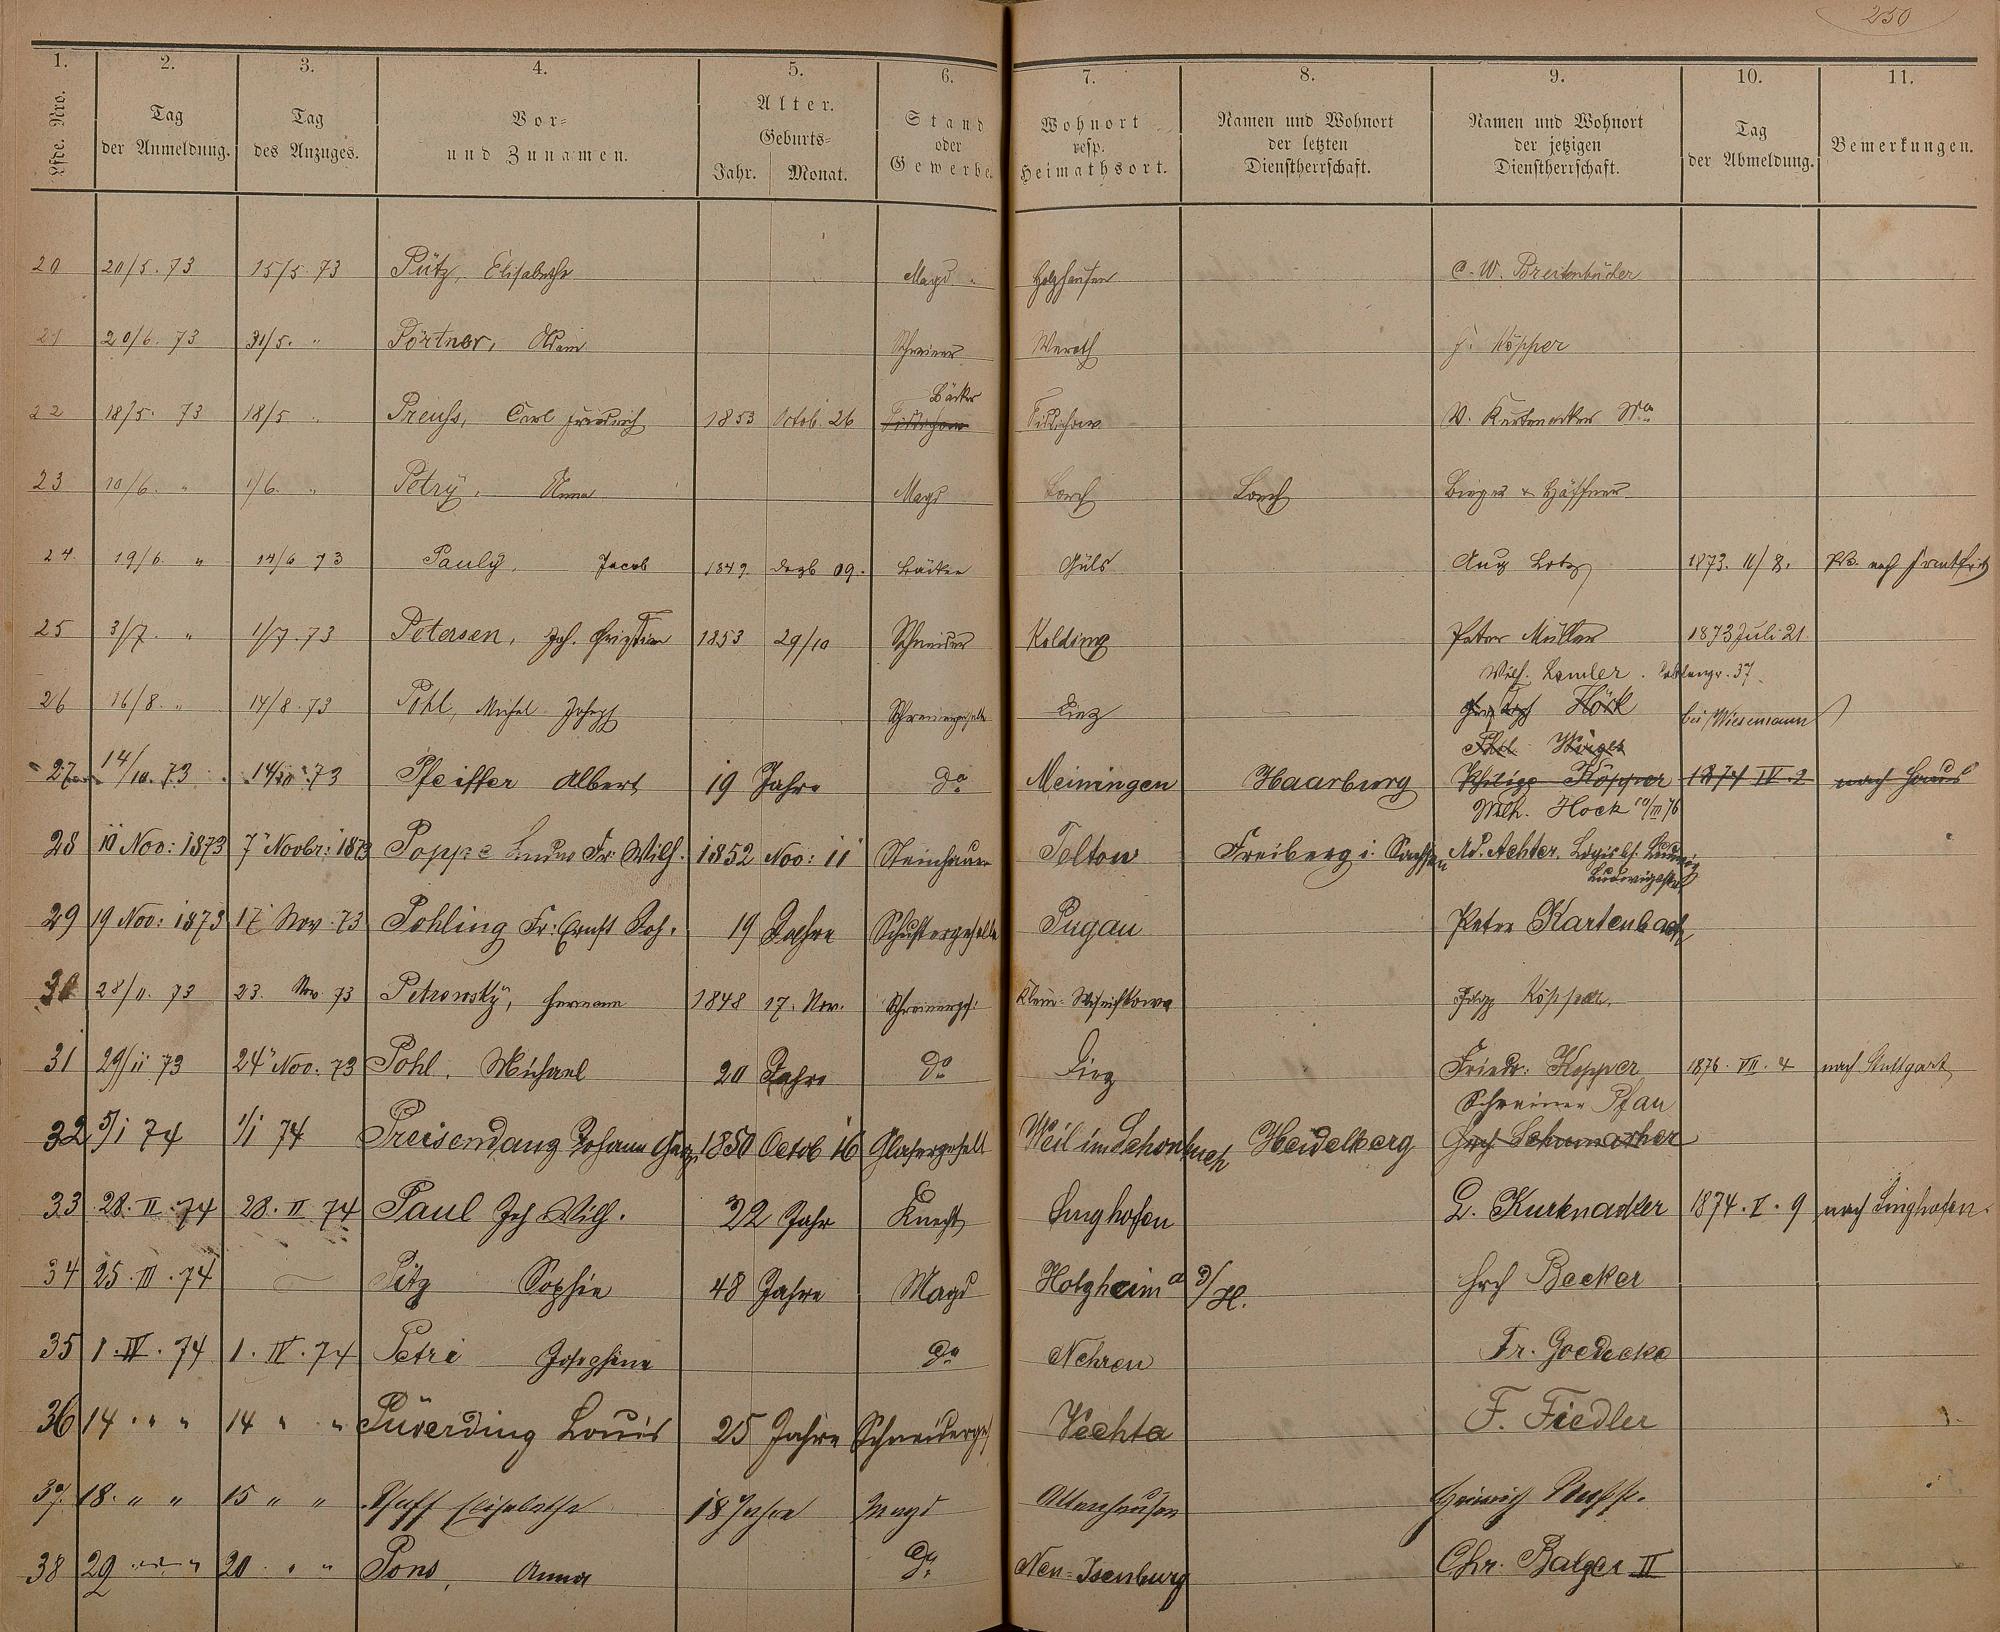 250
1. 2. 3. 4. 5. 6. 7. 8. 9. 10. 11.
Lfde. Nro. Tag der Anmeldung. Tag des Anzuges. Vor- und Zunamen. Alter. Geburts- Jahr. Monat. Stand oder Gewerbe. Wohnort resp. Heimathsort. Namen und Wohnort der letzten Dienstherrschaft. Namen und Wohnort der jetzigen Dienstherrschaft. Tag der Abmeldung. Bemerkungen.
20 20/5. 73 15/5. 73 Pütz, Elisabethe Magd Holzhausen C. W. Breitenbücher
21 20/6. 73 31/5. " Pörtner, Adam Schreiner Werath Köpper
Bäcker
22 18/5. 73 18/5 " Preuß, Carl Friedrich 1853 Octob. 26 Fidichow
23 10/6. " 1/6. " Petry, Anna Magd Lorch Lorch
24. 19/6. " 14/6 73 Pauly, Jacob 1849. Dezb 09. Bäcker Güls Aug Lotz 1873. 11/8. nach Frankfurt
25 3/7. " 1/7. 73 Petersen, Joh. Christian 1853 29/10 Schneider Kolding Peter Müller 1873 Juli 21.
Wilh. Lemler. 37.
26 16/8. " 14/8. 73 Pohl, Michel Joseph Schreinergeselle Diez Höck bei Wiesemann
27 14/10. 73 14/10 73 Pfeiffer Albert 19 Jahre do Meiningen Haarburg Philipp Köpper 1874 IV. 2 nach Haus
Wilh. Hock 10/III 76
28 10 Nov: 1873 7 Novbr: 1873 Poppe Fr: Wilh. 1852 Nov: 11 Steinhauer Teltow Freiberg i. Sachsen Ad. Achter, Logis bei Ludwig
Ludwigstr.
29 19 Nov: 1873 17 Nov. 73 Pohling Fr: Ernst Joh. 19 Jahre Schustergeselle Pugau Peter Kartenbach
30 28/11. 73 23. Nov. 73 Petrowsky, Hermann 1848 17. Nov. Schreinergs. Klein- Köpper.
31 29/11 73 24 Nov. 73 Pohl, Michael 20 Jahre do Diez Friedr: Kopper 1876. VII. 4 nach Stuttgart
Schreiner Pfau
32 5/1 74 1/1 74 Preisendanz Johann Georg 1850 Octob 16 Glasergesell Weil im Schonbuch Heidelberg Schumacher
33 28. II. 74 28. II 74 Paul Joh Wilh. 22 Jahr Knecht Singhofen L. Kurknadler 1874. V. 9 nach Singhofen.
34 25. III. 74 — Pitz Sophie 48 Jahre Magd Holzheim a d/H. Hrch Becker
35 1. IV. 74 1. IV. 74 Petri Josephine do Nehren Fr. Goedecke
36 14 " " " 14 " " Püverding Louis 25 Jahre Schneiderges Vechta F. Fiedler
37. 18. " " 15 " " Pfaff Elisabethe 18 Jahre Magd Altenhausen Heinrich
38 29 " " 20 " " Pons, Anna do Neu-Isenburg Chr. Balzer II